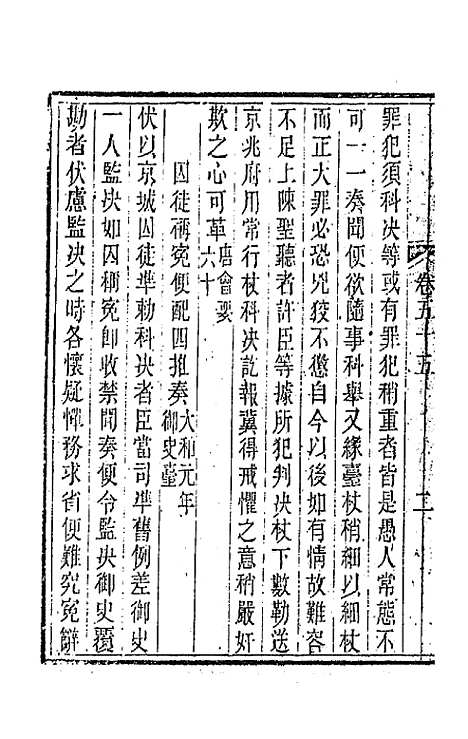 卷五十五
罪犯須科決等或有罪犯稍重者皆是愚人常態不
可一一奏聞便欲隨事科舉又緣臺杖稍細以細杖
而正大罪必恐兇狡不懲自今以後如有情故難容
不足上陳聖聽者許臣等據所犯判決杖下數勒送
京兆府用常行杖科決訖報冀得戒懼之意稍嚴奸
欺之心可革唐會要六十
囚徒稱冤便配四推奏大和元年御史臺
伏以京城囚徒準勅科決者臣當司準舊例差御史
一人監決如囚稱冤卽收禁聞奏便令監決御史覆
勘者伏慮監決之時各懷疑憚務求省便難究冤辭